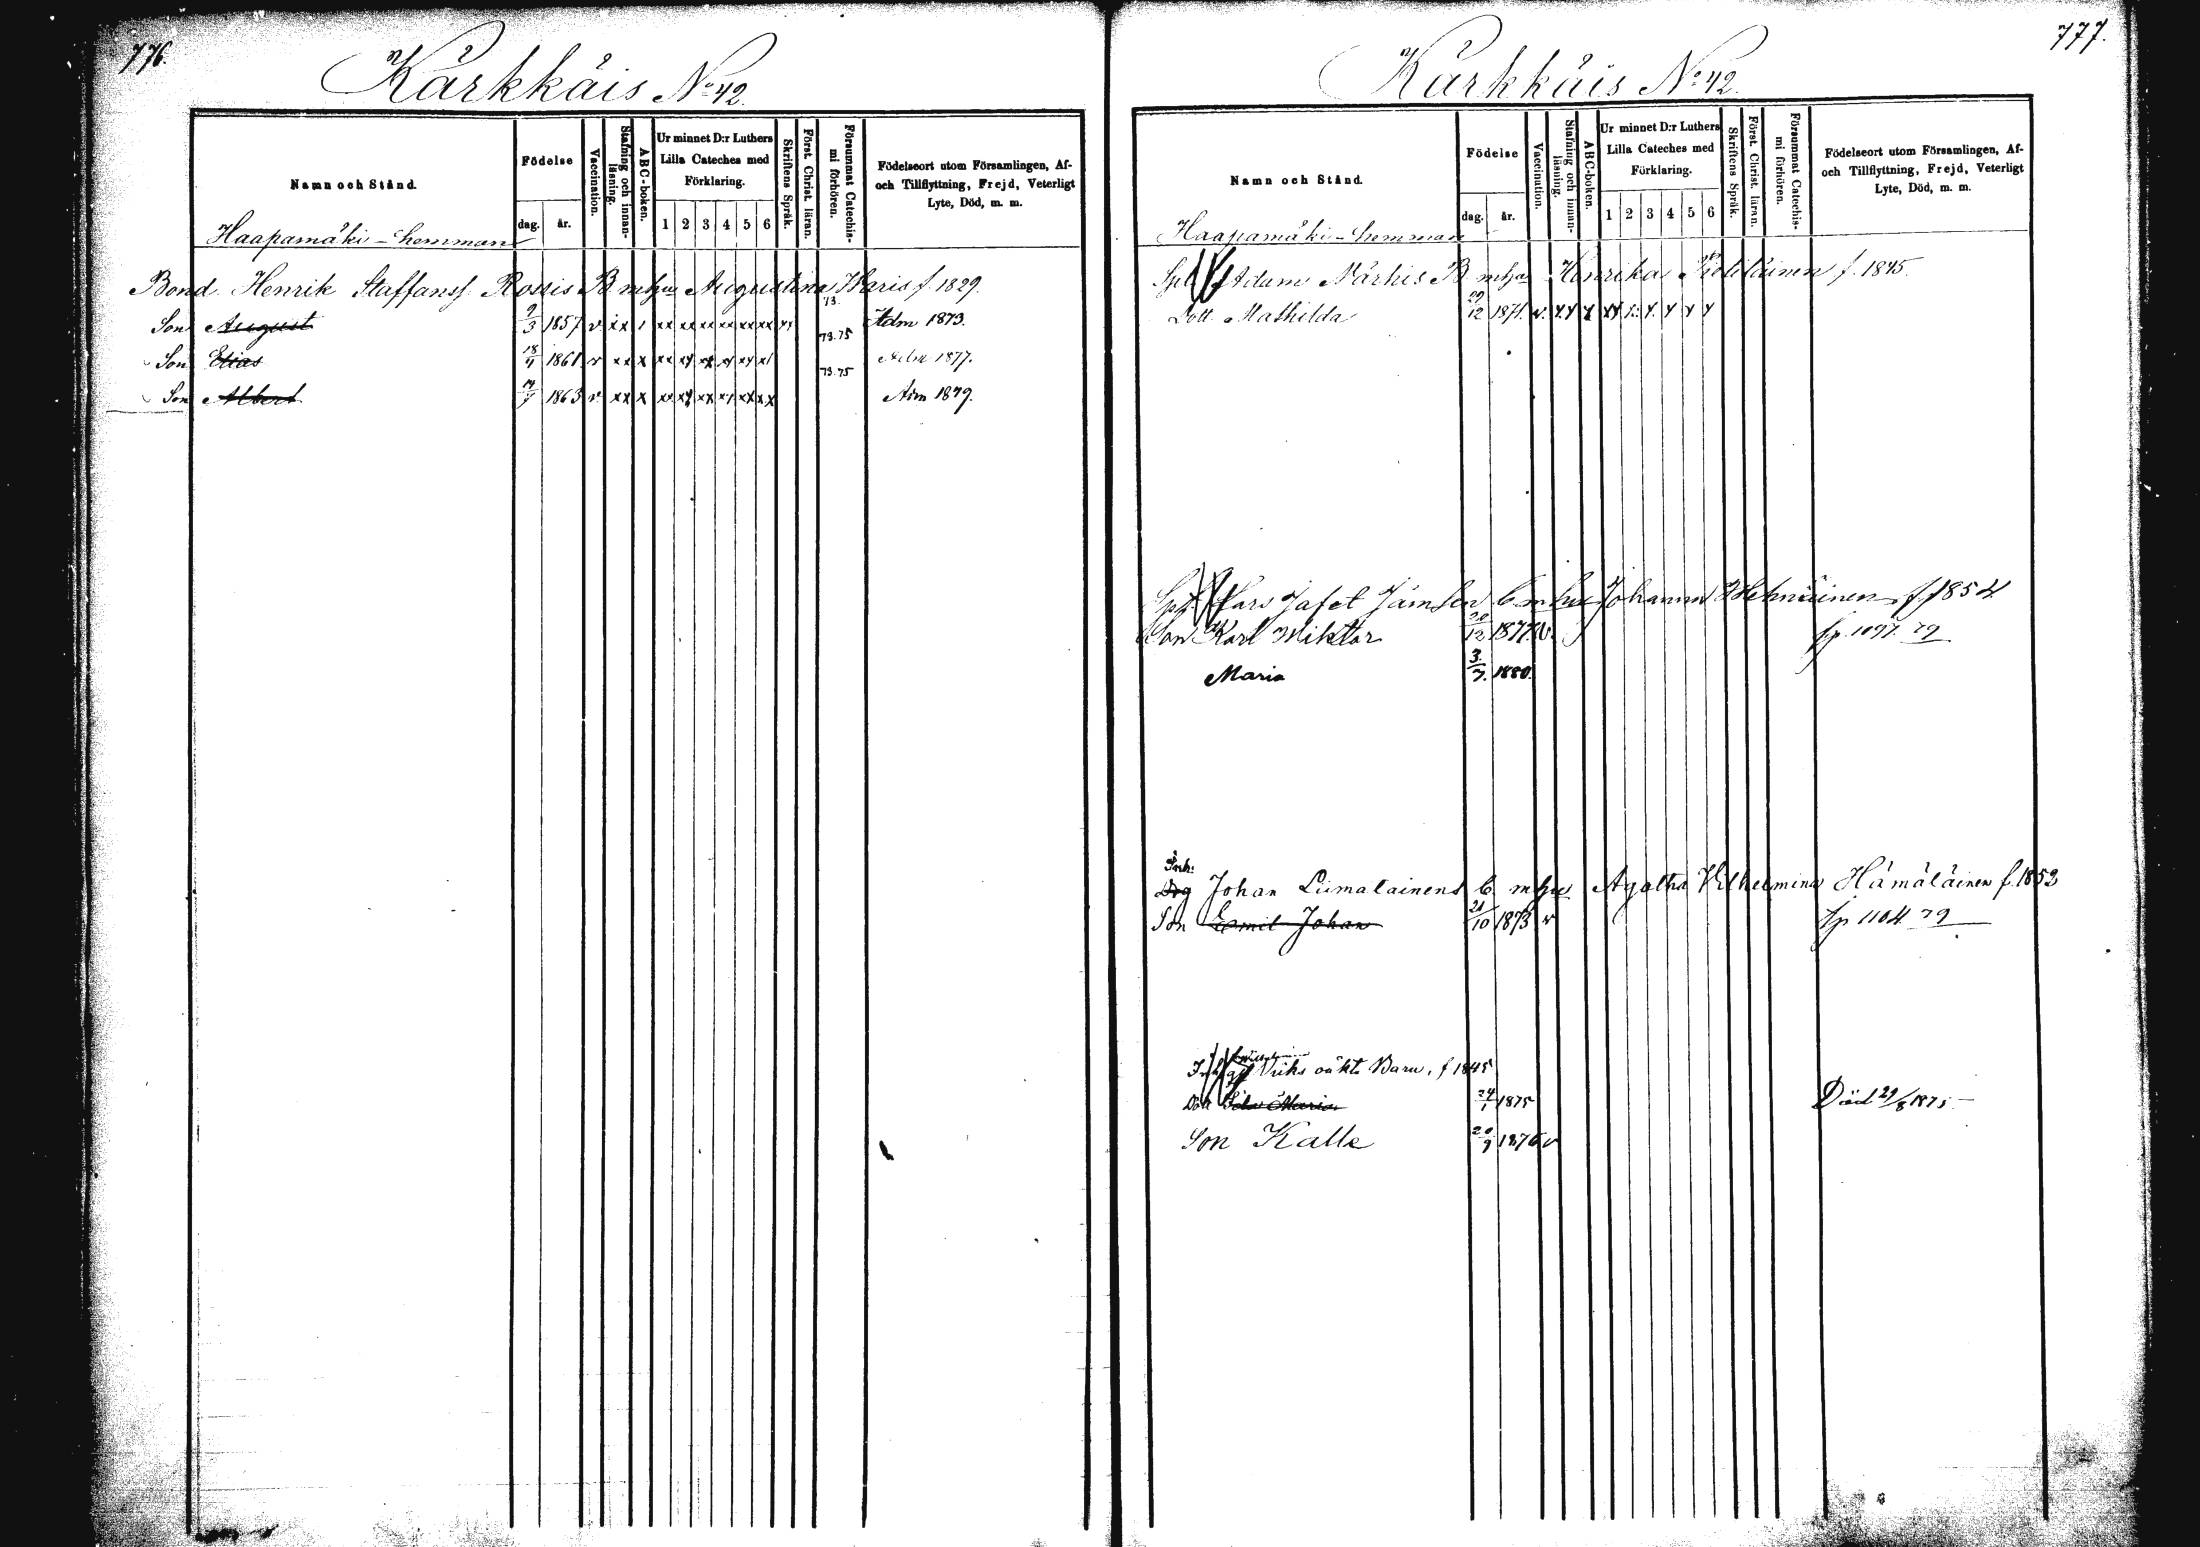 776.
Kärkkäis No 42.
Namn och Stånd.
Födelse
dag.
år.
Vaccination.
Stafning och innan-läsning.
ABC-boken.
Ur minnet D:r Luthers
Lilla Cateches med
Förklaring.
1 2 3 4 5 6
Skriftens Språk.
Först. Christ. läran.
Försummat Catechis-
mi förhören.
Födelseort utom Församlingen, Af-
och Tillflyttning, Frejd, Veterligt
Lyte, Död, m. m.
Haapamäki-hemman
Bond. Henrik Staffanss. Rossis B mhu Augustina Haris f. 1829.
73.
Son August 9/3 1857 v xx xx xx xx xx xx xx Adm 1873.
73.75
Son Elias 18/4 1861 v xx x xx xx xx xx xx Adm 1877.
73.75
Son Albert 1863 v xx x xx xx xx xx xx xx Adm 1879.
777.
Kärkkäis No 42.
Namn och Stånd.
Födelse
dag.
år.
Vaccination.
Stafning och innan-
läsning.
ABC-boken.
Ur minnet D:r Luthers
Lilla Cateches med
Förklaring.
1 2 3 4 5 6
Skriftens Språk.
Först. Christ. läran.
Försummat Catechis-
mi förhören.
Födelseort utom Församlingen, Af-
och Tillflyttning, Frejd, Veterligt
Lyte, Död, m. m.
Haapamäki-hemman
Adam Närhis B mhu Henrika f. 1845.
Dott. Mathilda 29/12 1871. v.
Lars Jafet Jämsen b mhu Johanna f 1854
Son Karl Wiktor 20/12 1877. v. fp. 1097. 79
Maria 3/7. 1880.
Inh:
Drg Johan Liimatainens b. mhu Agatha Vilhelmina Hämäläinen f. 1852
Son Emil Johan 21/10 1873 v fp 1104 79
oäkta Barn, f 1845
Dott Maria 24/1 1875 Död 29/8 1875.
Son Kalle 20/9 1876 v